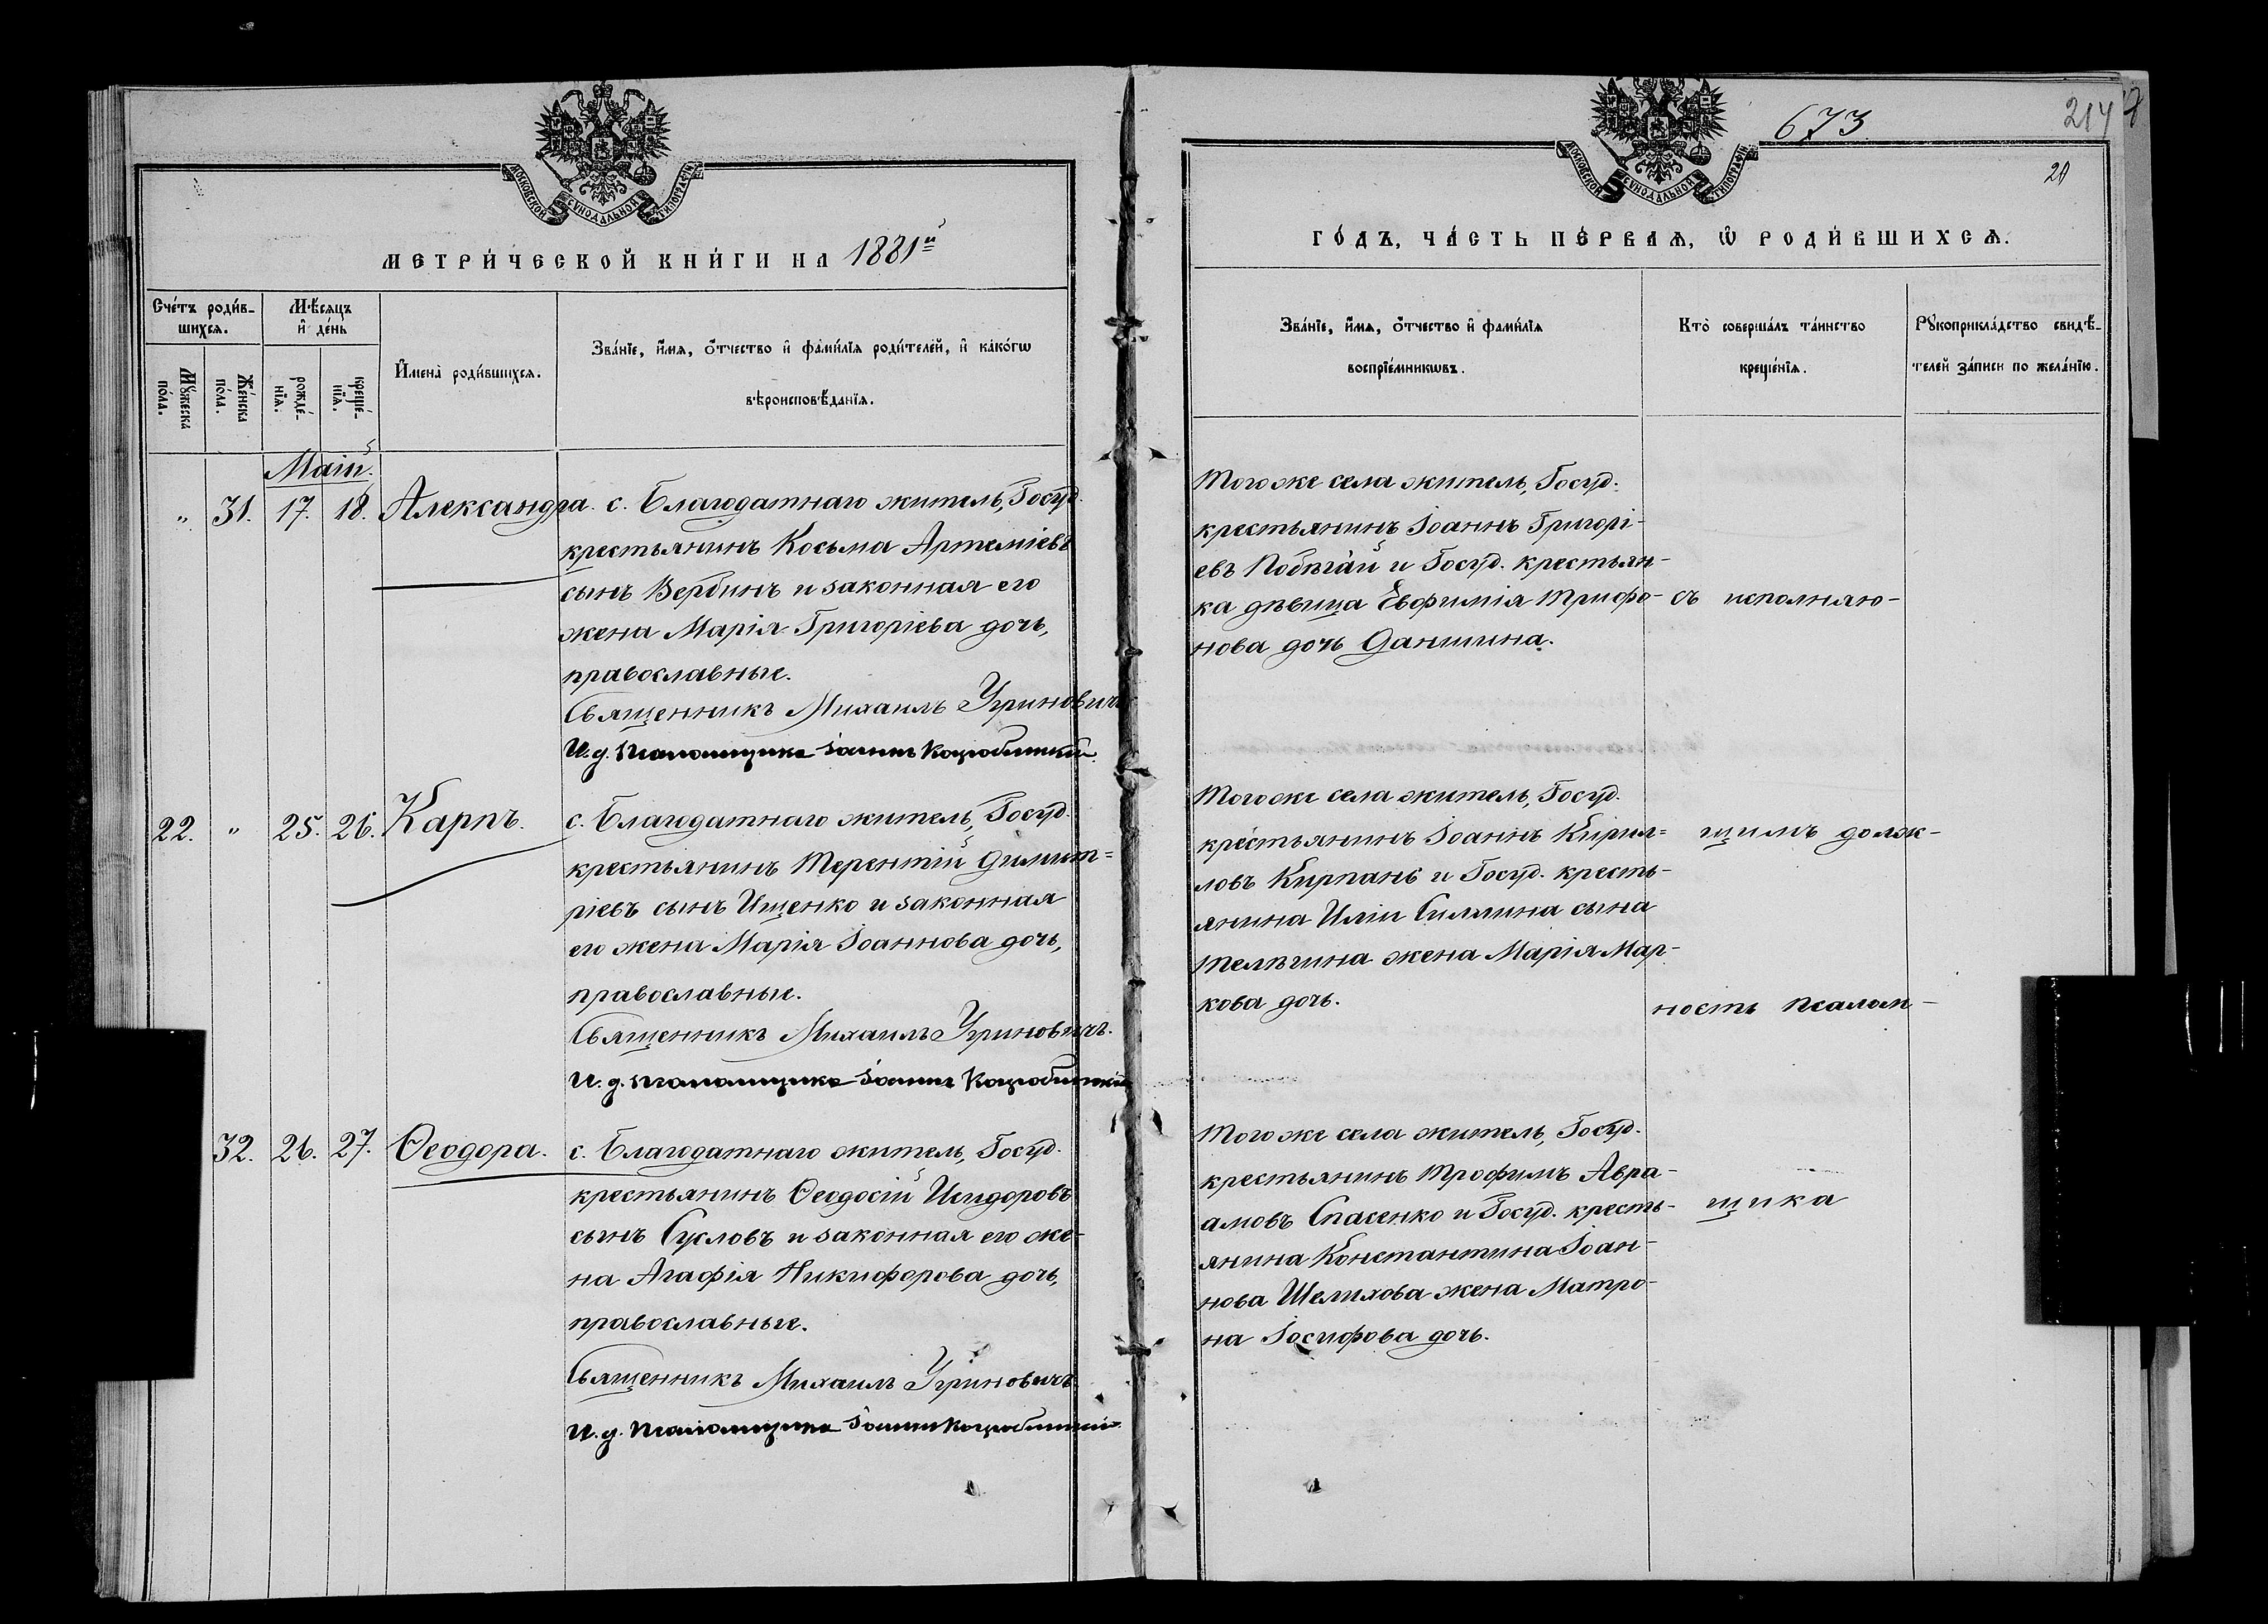 МОСКОВСКОЙ СѴНОДАЛЬНОЙ ТИПОГРАФІИ
МЕТРИ́ЧЕСКОЙ КНИ́ГИ НА 1881й
Сче́тъ роди́в-
шихсѧ.
Мꙋ́жеска
по́ла.
Же́нска
по́ла.
Мѣ́сѧцъ
и҆ де́нь
рожде́-
нїѧ.
креще́-
нїѧ.
И҆мена̀ роди́вшихсѧ.
Зва́нїе, и҆́мѧ, ѻ҆́тчество и҆ фами́лїѧ роди́телей, и҆ како́гѡ
вѣроисповѣ́данїѧ.
Маій.
„ 31. 17. 18. Александра. с. Благодатнаго житель, Госуд.
крестьянинъ Косьма Артеміевъ
сынъ Вербинъ и законная его
жена Марія Григоріева дочь,
православные.
Священникъ Михаилъ Угриновичъ
И. д. псаломщика Іоаннъ
22. „ 25. 26. Карпъ. с. Благодатнаго житель, Госуд.
крестьянинъ Терентій Димит=
ріевъ сынъ Ищенко и законная
его жена Марія Іоаннова дочь,
православные.
Священникъ Михаилъ Угриновичъ.
И. д. псаломщика Іоаннъ
32. 26. 27. Ѳеодора. с. Благодатнаго житель, Госуд.
крестьянинъ Ѳеодосій Исидоровъ
сынъ Сусловъ и законная его же-
на Агафія Никифорова дочь,
православные.
Священникъ Михаилъ Угриновичъ.
И. д. псаломщика Іоаннъ
673.
214
20
МОСКОВСКОЙ СѴНОДАЛЬНОЙ ТИПОГРАФІИ
ГО́ДЪ, ЧА́СТЬ ПЕ́РВАѦ, Ѡ҆ РОДИ́ВШИХСѦ.
Зва́нїе, и҆́мѧ, ѻ҆́тчество и҆ фами́лїѧ
воспрїе́мникѡвъ.
Кто̀ соверша́лъ та́инство
креще́нїѧ.
Рꙋкоприкла́дство свидѣ́-
телей за́писи по жела́нїю.
Того же села житель, Госуд.
крестьянинъ Іоаннъ Григорі-
евъ Побѣгай и Госуд. крестьян-
ка дѣвица Евфимія Трифо-
нова дочь Даншина.
Того же села житель, Госуд.
крестьянинъ Іоаннъ Кирил=
ловъ Кирпань и Госуд. кресть-
янина Иліи Силлина сына
Телѣгина жена Марія Мар-
кова дочь.
Того же села житель, Госуд.
крестьянинъ Трофимъ Авра-
амовъ Спасенко и Госуд. кресть-
янина Константина Іоан-
нова Шелихова жена Матро-
на Іосифова дочь.
съ исполняю-
щимъ долж-
ность псалом-
щика